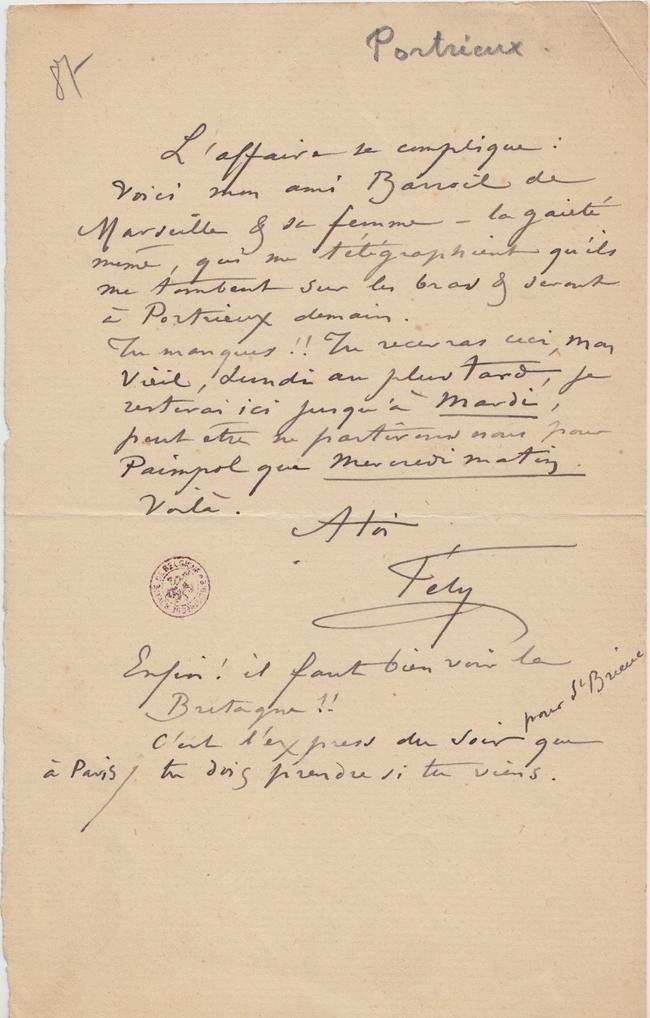 Portrieux.
85
L'affaire se complique :
Voici mon ami Barroil de
Marseille & sa femme – la gaieté
même, qui me télégraphient qu'ils
me tombent sur les bras & seront
à Portrieux demain.
Tu manques !! Tu recevras ceci, mon
Vieil, Lundi au plus tard, je
resterai ici jusqu'à Mardi,
peut être ne partirons nous pour
Paimpol que Mercredi matin.
Voilà.
A toi
Fély
Enfin ! il faut bien voir la
Bretagne !!
pour St Brieuc
C'est l'express du soir que
à Paris / tu dois prendre si tu viens.